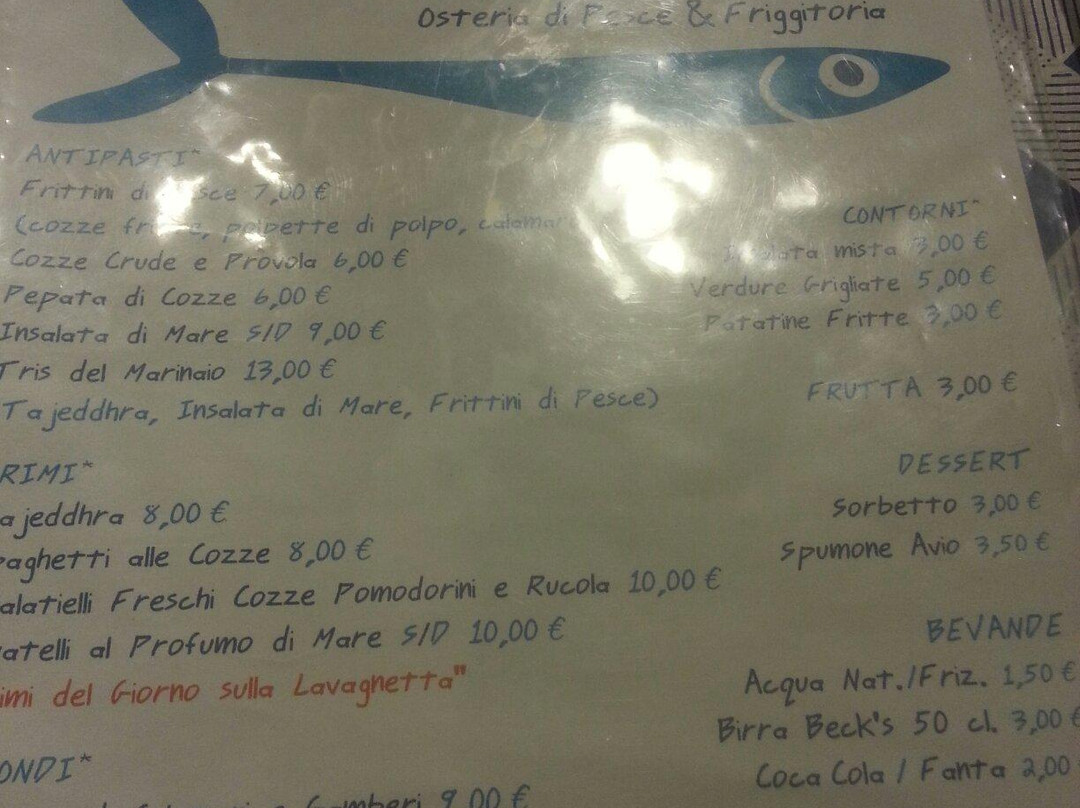 Osteria di Pesce & Friggitoria
ANTIPASTI*
Frittini di Pesce 7,00 €
(cozze fritte, polpette di polpo, calamar
Cozze Crude e Provola 6,00 €
Pepata di Cozze 6,00 €
Insalata di Mare S/D 9,00 €
Tris del Marinaio 13,00 €
Tajeddhra, Insalata di Mare, Frittini di Pesce)
RIMI*
ajeddhra 8,00 €
paghetti alle Cozze 8,00 €
alatielli Freschi Cozze Pomodorini e Rucola 10,00 €
atelli al Profumo di Mare S/D 10,00 €
imi del Giorno sulla Lavagnetta"
ONDI*
e Gamberi 9,00 €
CONTORNI*
Insalata mista 3,00 €
Verdure Grigliate 5,00 €
Patatine Fritte 3,00 €
FRUTTA 3,00 €
DESSERT
Sorbetto 3,00 €
Spumone Avio 3,50 €
BEVANDE
Acqua Nat./Friz. 1,50 €
Birra Beck's 50 cl. 3,00 €
Coca Cola / Fanta 2,00